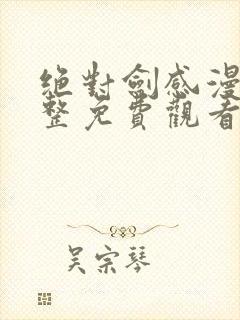 絕對劍感漫
整免費觀看
吳宗琴